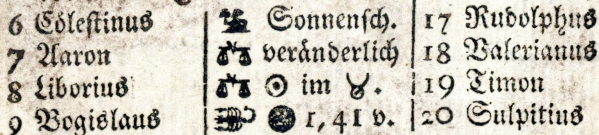 6 Cölestinus ♍ Sonnensch. 17 Rudolphus
7 Aaron ♎ veränderlich 18 Valerianus
8 Liborius ♎ ☉ im ♉. 19 Timon
9 Bogislaus ♏ 🌑 1, 41 v. 20 Sulpitius